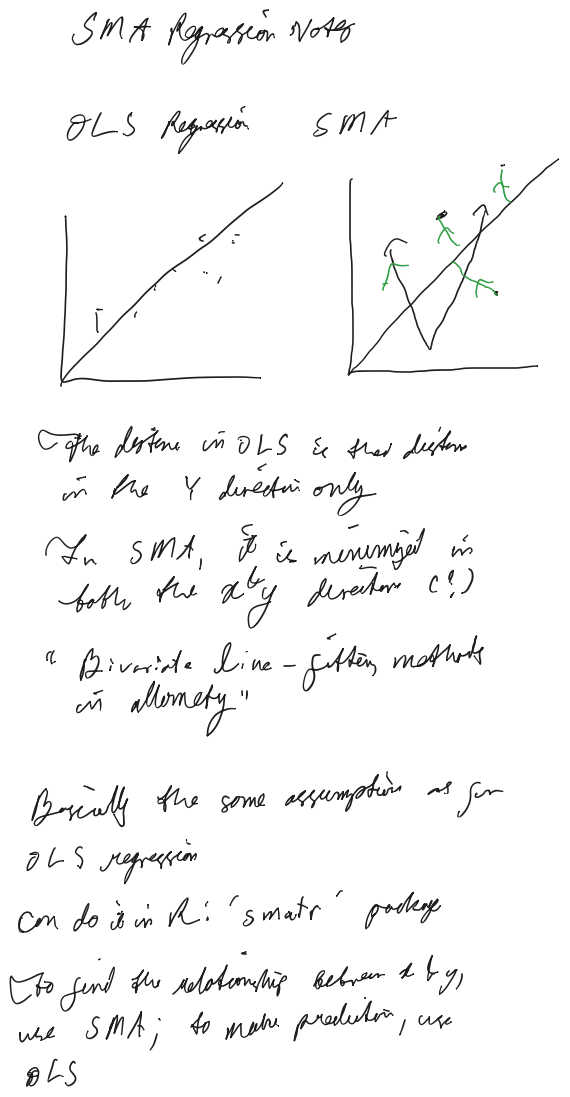 SMA Regression Notes
OLS Regression SMA
The distance in OLS is the distance
in the Y direction only
In SMA, it is minimized in
both the x & y directions (?)
"Bivariate line-fitting methods
in allometry"
Basically the same assumptions as for
OLS regression
Can do it in R: 'smatr' package
to find the relationship between x & y,
use SMA; to make prediction, use
OLS